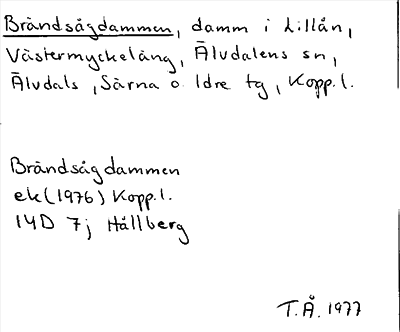 Brändsågdammen, damm i Lillån,
Västermyckeläng, Älvdalens sn,
Älvdals, Särna o Idre tg, Kopp.l.
Brändsågdammen
ek(1976) Kopp.l.
14D 7j Hållberg
T.Å. 1977